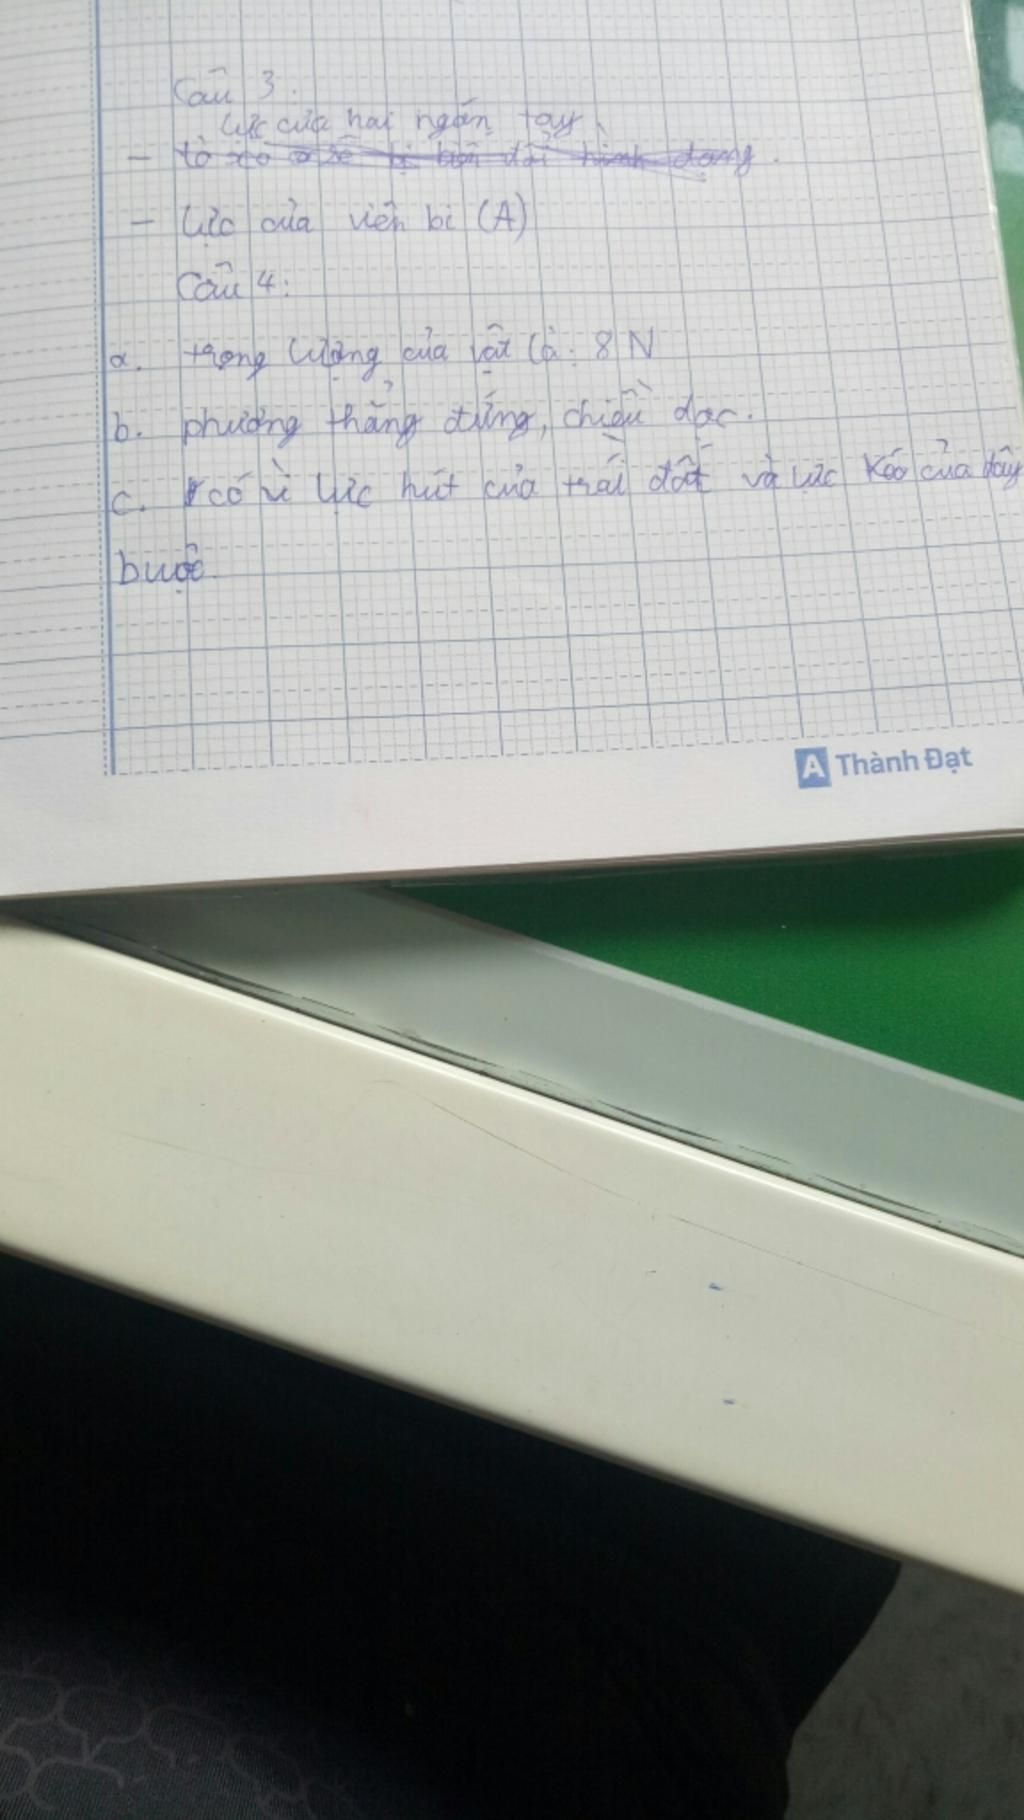 Câu 3.
Lực của hai ngón tay.
- lò xo hình dạng.
- Lực của viên bi (A)
Câu 4:
a. trọng lượng của vật là: 8 N
b. phương thẳng đứng, chiều dọc.
c. có vì lực hút của trái đất và lực kéo của dây
buộc
A Thành Đạt